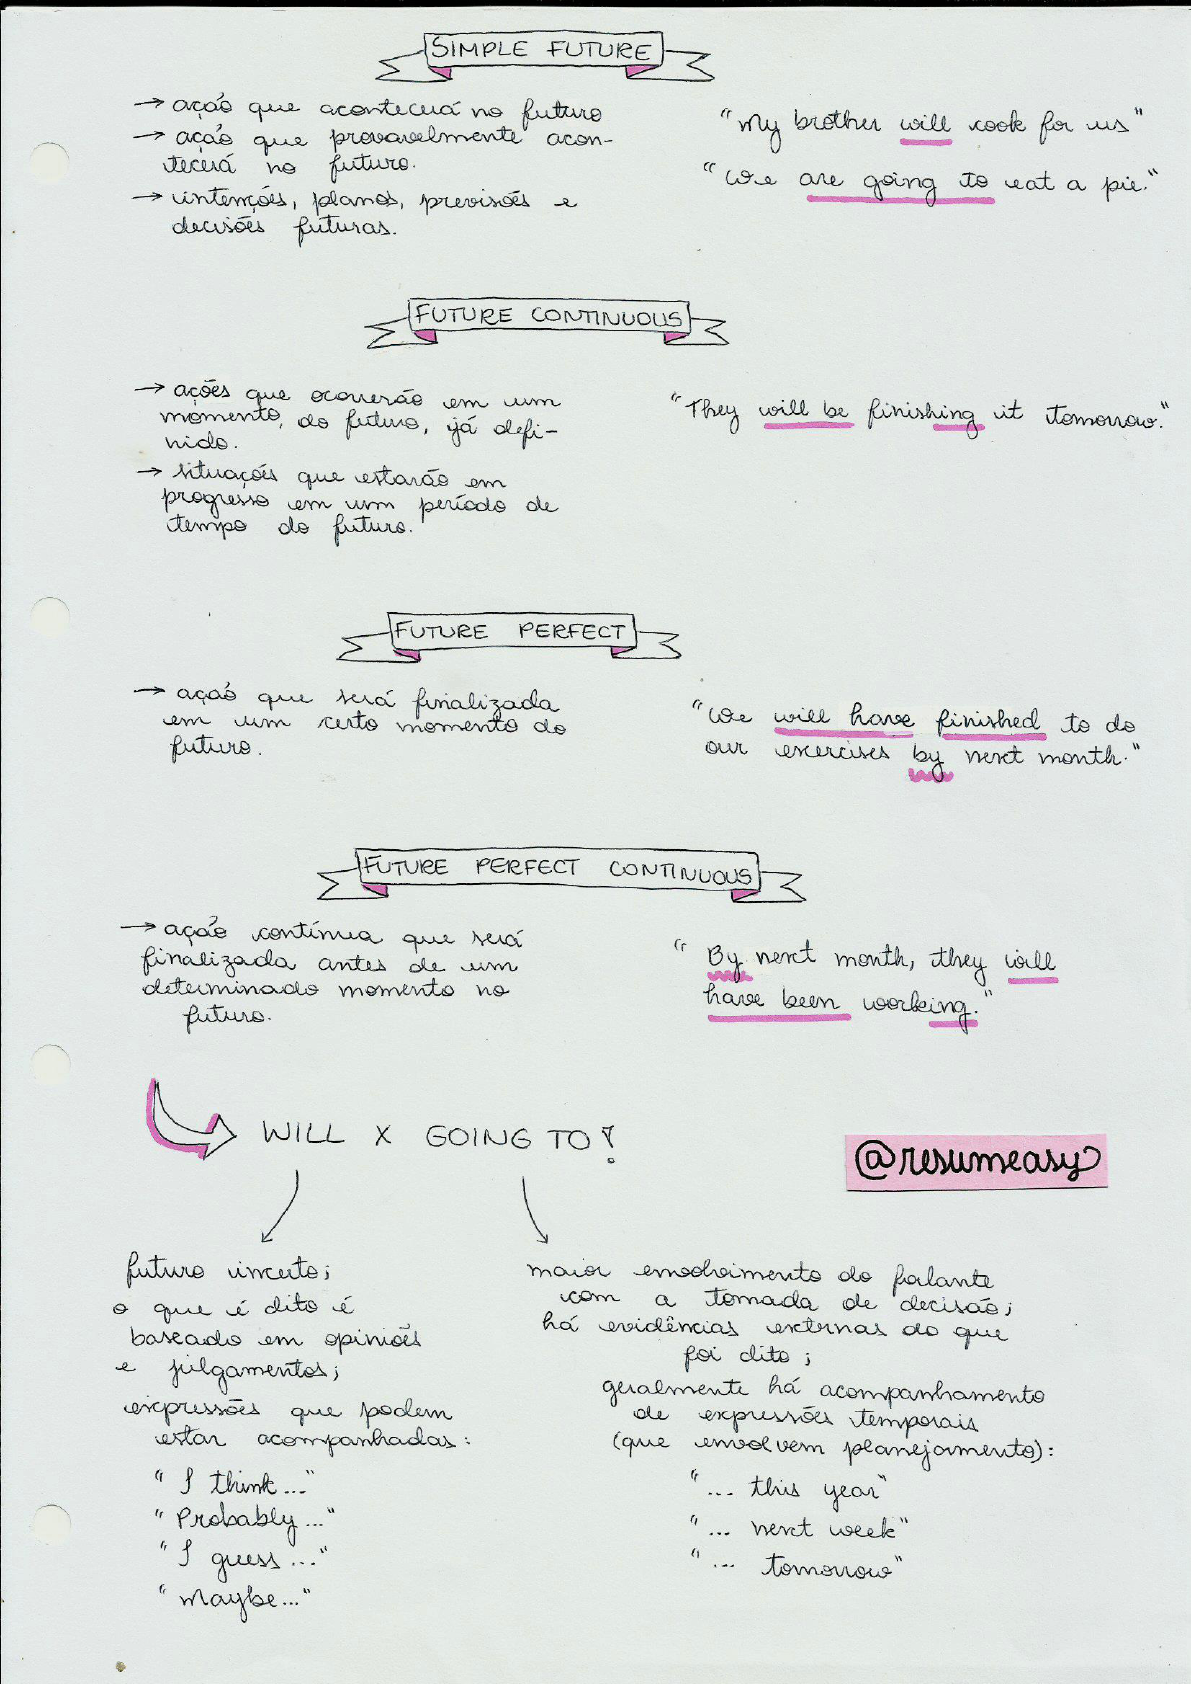 SIMPLE FUTURE
→ ação que acontecerá no futuro
→ ação que provavelmente acon-
tecerá no futuro.
→ intenções, planos, previsões e
decisões futuras.
"My brother will cook for us"
"We are going to eat a pie."
FUTURE CONTINUOUS
→ ações que ocorrerão em um
momento, do futuro, já defi-
nido.
→ situações que estarão em
progresso em um período de
tempo do futuro.
"They will be finishing it tomorrow."
FUTURE PERFECT
→ ação que será finalizada
em um certo momento do
futuro.
"We will have finished to do
our exercises by next month."
FUTURE PERFECT CONTINUOUS
→ ação contínua que será
finalizada antes de um
determinado momento no
futuro.
"By next month, they will
have been working."
WILL X GOING TO!
@resumeasy
futuro incerto;
o que é dito é
baseado em opiniões
e julgamentos;
expressões que podem
estar acompanhadas:
"I think..."
"Probably..."
"I guess..."
"Maybe..."
maior envolvimento do falante
com a tomada de decisão;
há evidências externas do que
foi dito;
geralmente há acompanhamento
de expressões temporais
(que envolvem planejamento):
"... this year"
"... next week"
"... tomorrow"